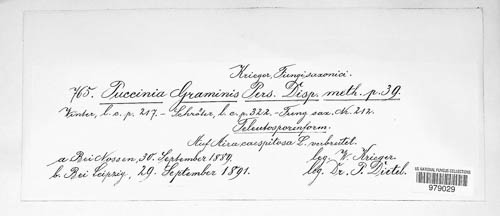 Krieger, Fungi saxonici.
765. Puccinia Graminis Pers. Disp. meth. p. 39.
Winter, l. c. p. 217. - Schröter, l. c. p. 322. - Fung. sax. Nr. 212.
Teleutosporinform.
Auf Aira caespitosa L. verbreitet.
a. Bei Nossen, 30. September 1889. leg. W. Krieger.
b. Bei Leipzig, 29. September 1891. leg. Dr. P. Dietel.
US NATIONAL FUNGUS COLLECTIONS
979029